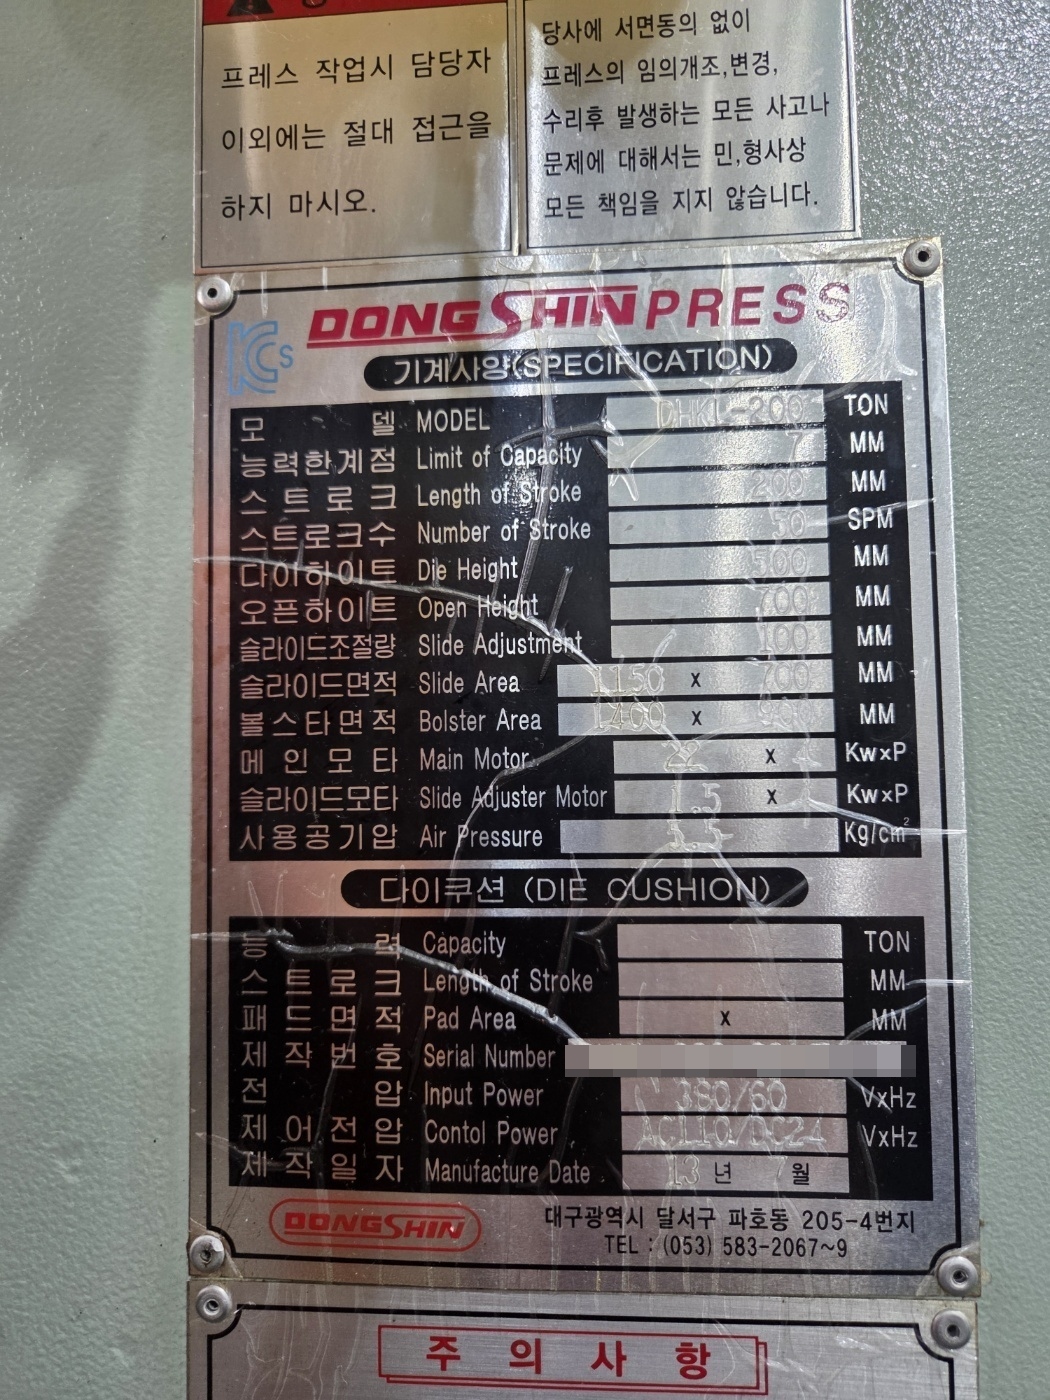 프레스 작업시 담당자
이외에는 절대 접근을
하지 마시오.
당사에 서면동의 없이
프레스의 임의개조,변경,
수리후 발생하는 모든 사고나
문제에 대해서는 민,형사상
모든 책임을 지지 않습니다.
DONGSHIN PRESS
KCs
기계사양(SPECIFICATION)
모 델 MODEL DHKL-200 TON
능력한계점 Limit of Capacity 7 MM
스트로크 Length of Stroke 200 MM
스트로크수 Number of Stroke 50 SPM
다이하이트 Die Height 500 MM
오픈하이트 Open Height 700 MM
슬라이드조절량 Slide Adjustment 100 MM
슬라이드면적 Slide Area 1150 x 700 MM
볼스타면적 Bolster Area 1400 x MM
메인모타 Main Motor 22 x 4 KwxP
슬라이드모타 Slide Adjuster Motor 1.5 x 4 KwxP
사용공기압 Air Pressure 5.5 Kg/cm²
다이쿠션 (DIE CUSHION)
능 력 Capacity TON
스트로크 Length of Stroke MM
패드면적 Pad Area x MM
제작번호 Serial Number
전 압 Input Power 380/60 VxHz
제어전압 Contol Power AC110/DC24 VxHz
제작일자 Manufacture Date 13 년 7 월
DONGSHIN
대구광역시 달서구 파호동 205-4번지
TEL : (053) 583-2067~9
주 의 사 항